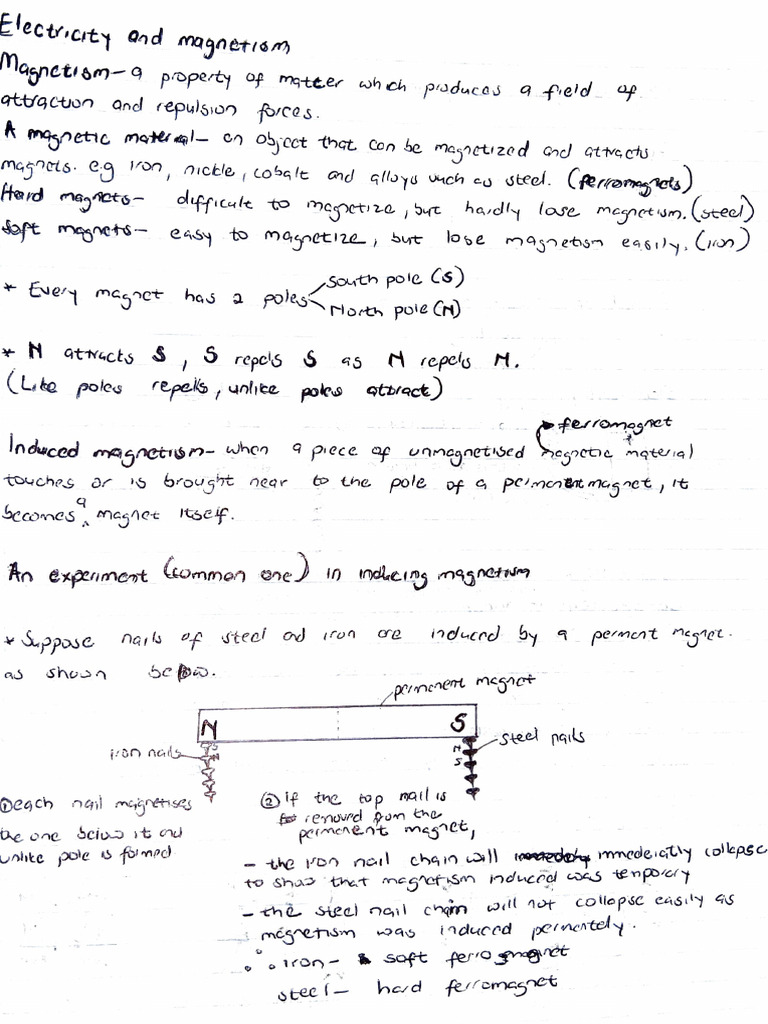 Electricity and magnetism
Magnetism- a property of matter which produces a field of
attraction and repulsion forces.
A magnetic material- an object that can be magnetized and attracts
magnets. e.g iron, nickle, cobalt and alloys such as steel. (ferromagnets)
Hard magnets- difficult to magnetize, but hardly lose magnetism. (steel)
Soft magnets- easy to magnetize, but lose magnetism easily. (iron)
* Every magnet has 2 poles
South pole (S)
North pole (N)
* N attracts S, S repels S as N repels N.
(Like poles repells, unlike poles attract)
ferromagnet
Induced magnetism- when a piece of unmagnetised magnetic material
touches or is brought near to the pole of a permanent magnet, it
becomes a magnet itself.
An experiment (common one) in inducing magnetism
* Suppose nails of steel and iron are induced by a perment magnet.
as shown below.
permanent magnet
N S
iron nails
S
N
N
S
steel nails
① each nail magnetises
the one below it and
unlike pole is formed
② if the top nail is
removed from the
permenent magnet,
- the iron nail chain will immedeiatly collapse
to show that magnetism induced was temporary
- the steel nail chain will not collapse easily as
magnetism was induced permentely.
∴ iron- soft ferromagnet
steel- hard ferromagnet